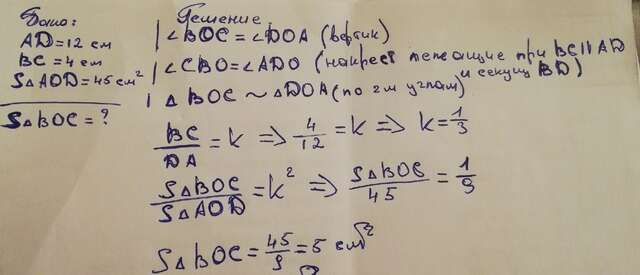 Дано:
AD=12 см
BC=4 см
S△AOD=45 см²
S△BOC=?
Решение
∠BOC=∠DOA (вертик)
∠CBO=∠ADO (накрест лежащие при BC||AD
и секущ BD)
△BOC ~ △DOA (по 2м углам)
BC/DA = k => 4/12 = k => k=1/3
S△BOC/S△AOD = k² => S△BOC/45 = 1/9
S△BOC = 45/9 = 5 см²